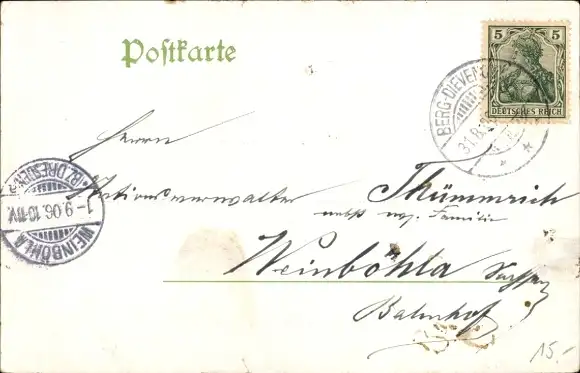 Postkarte
5 5
DEUTSCHES REICH
BERG-DIEVEN
31.8.
Herrn
Stationsverwalter Thümmrich
nebst wg. Familie
Weinböhla Sachsen
Bahnhof
BZ. DRESDEN
1-9.06.10-11V.
WEINBÖHLA
15.-